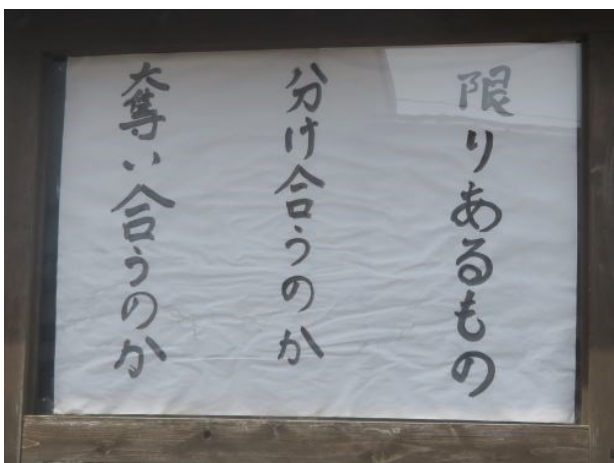 限りあるもの
分け合うのか
奪い合うのか